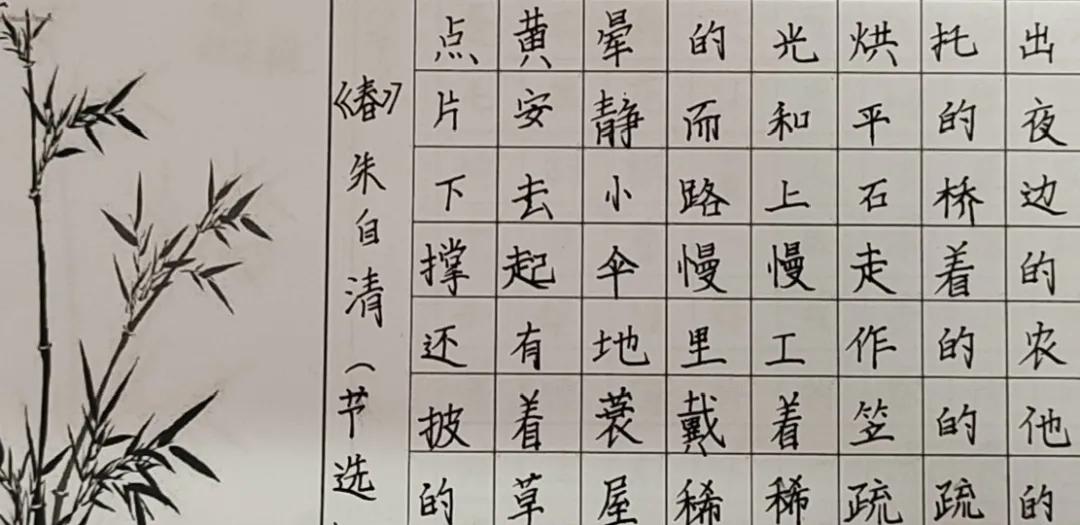 《春》朱自清（节选
点黄晕的光烘托出
片安静而和平的夜
下去小路上石桥边
撑起伞慢慢走着的
还有地里工作的农
披着蓑戴着笠的他
的草屋稀稀疏疏的